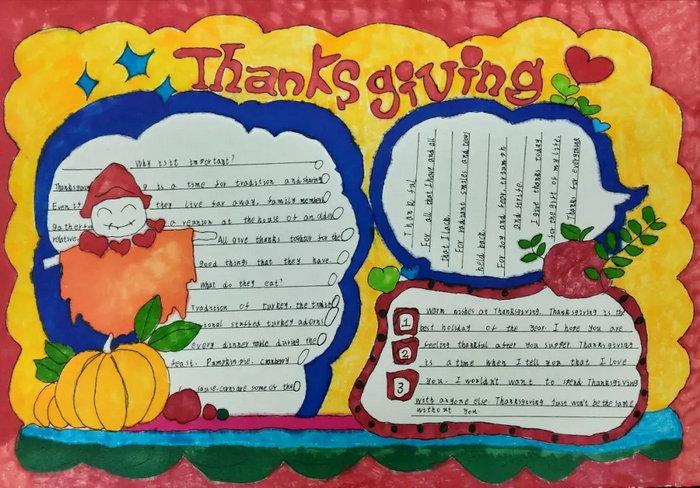 Thanksgiving
Why is it important?
Thanksgiving is a time for tradition and sharing
Even if they live far away, family members
gather for a reunion at the house of an older
relative. All give thanks together for the
good things that they have
What do they eat?
Tradition of turkey, the tradi
ional stuffed turkey adorns
every dinner table during the
feast. Pumpkin pie, cranberry
sause, corn are some of the
Thank ful
For all that I have and all
that I lack
For radiant smiles and tears
held back
For joy and tears triumph
and strife
I give thanks today
for the gift of my life
Thanks for everything
1
2
3
Warm wishes at Thanksgiving. Thanksgiving is the
best holiday of the year. I hope you are
feeling thankful after you supper. Thanksgiving
is a time when I tell you that I love
you. I wouldn't want to spend Thanksgiving
with anyone else Thanksgiving Just won't be the same
without you